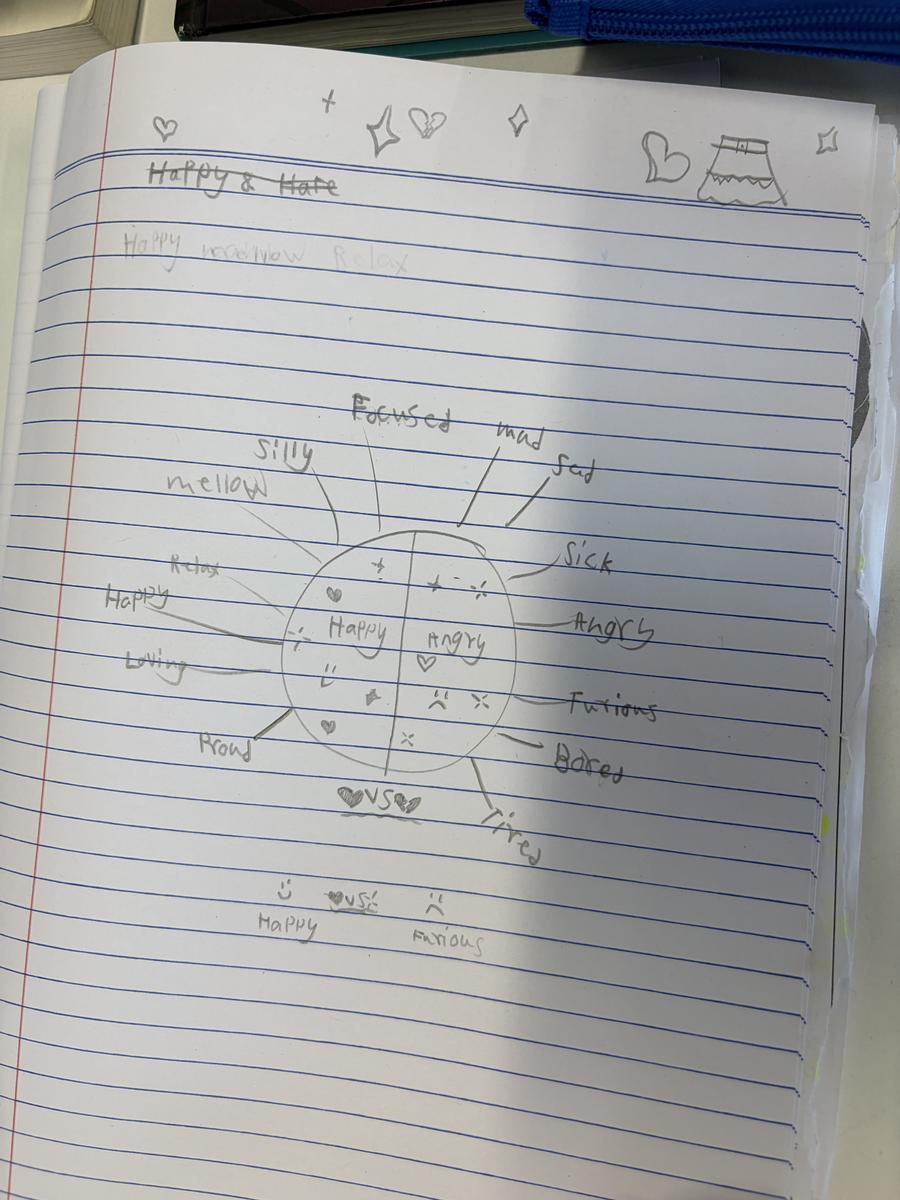 Happy & Hate
Happy Relax
Focused
mad
Silly
Sad
mellow
Sick
Relax
Happy
Happy
Angry
Angry
Loving
Furious
Proud
Bored
VS
Tired
VS
Happy
Furious